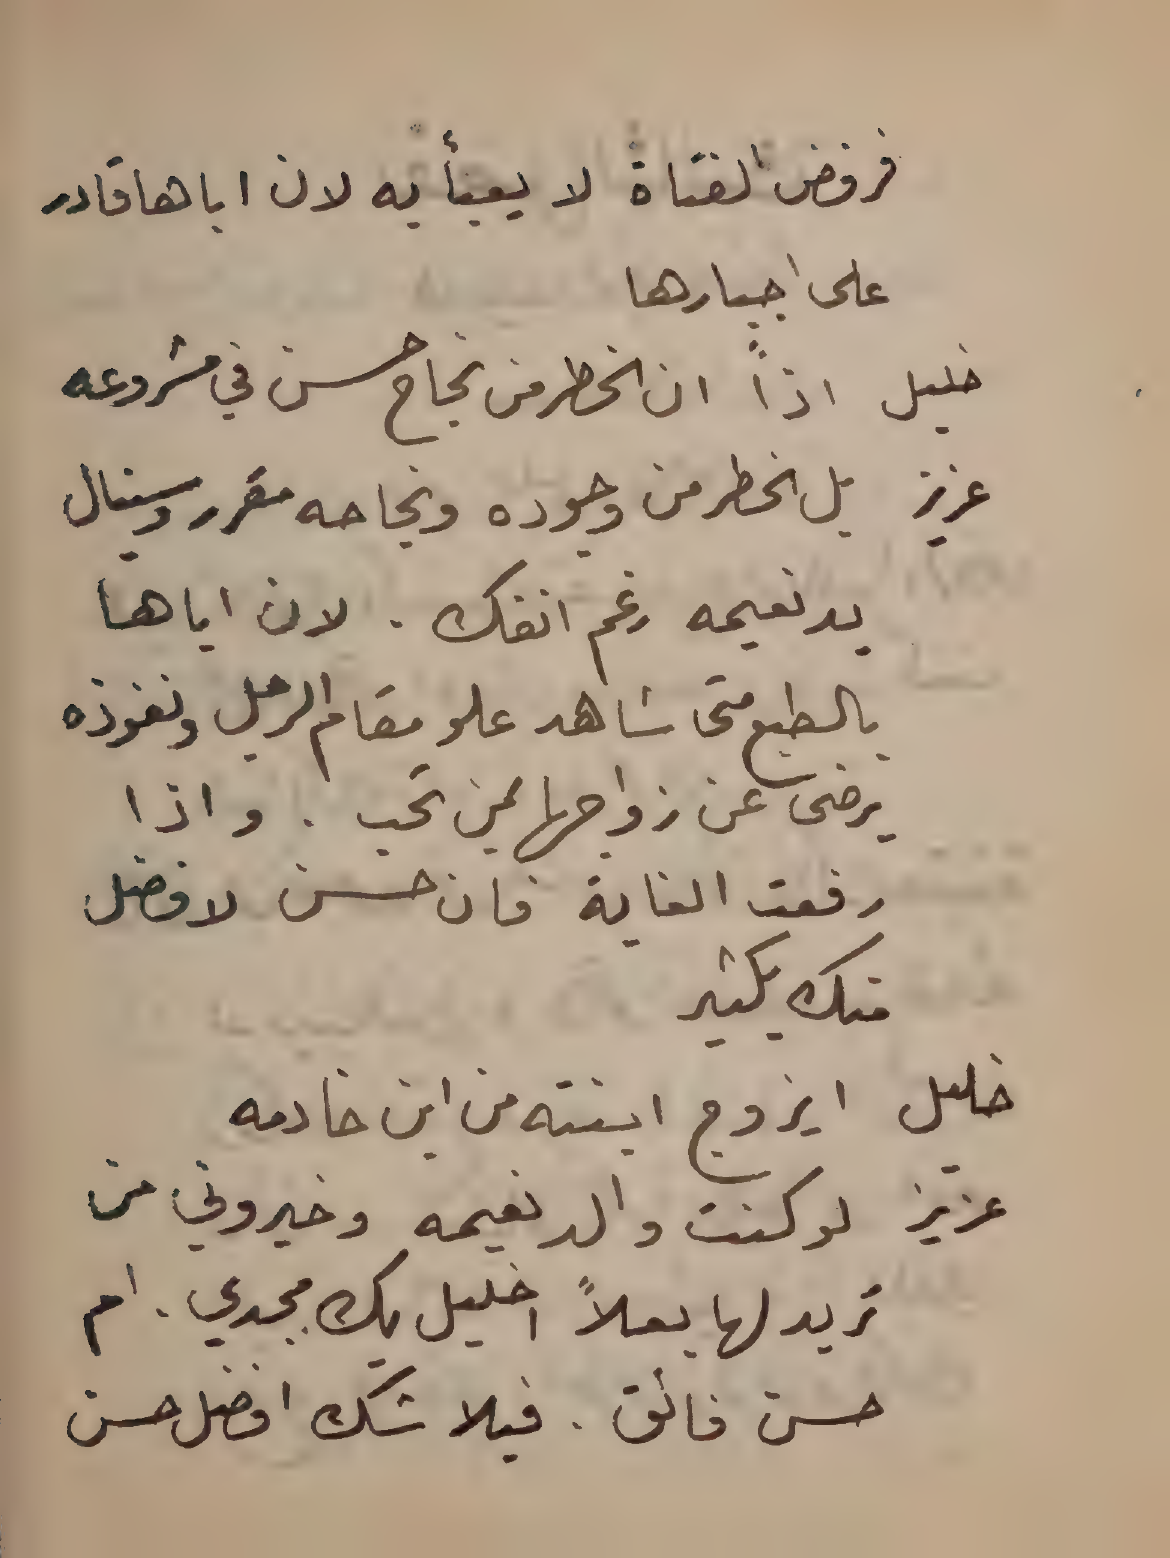 فرفض الفتاة لا يعبأ به لان اباها قادر
على اجبارها
خليل اذاً ان الخطر من نجاح حسن في مشروعه
عزيز بل الخطر من وجوده ونجاحه مقرر وسينال
يد نعيمه رغم انفك . لان اباها
بالطبع متى شاهد علو مقام الرجل ونفوذه
يرضى عن زواجها لمن تحب . واذا
رفعت الغاية فان حسن لافضل
منك بكثير
خليل ايزوج ابنته من ابن خادمه
عزيز لو كنت والد نعيمه وخيروني من
تريد لها بعلاً اخليل بك مجدي . ام
حسن فائق . فبلا شك افضل حسن